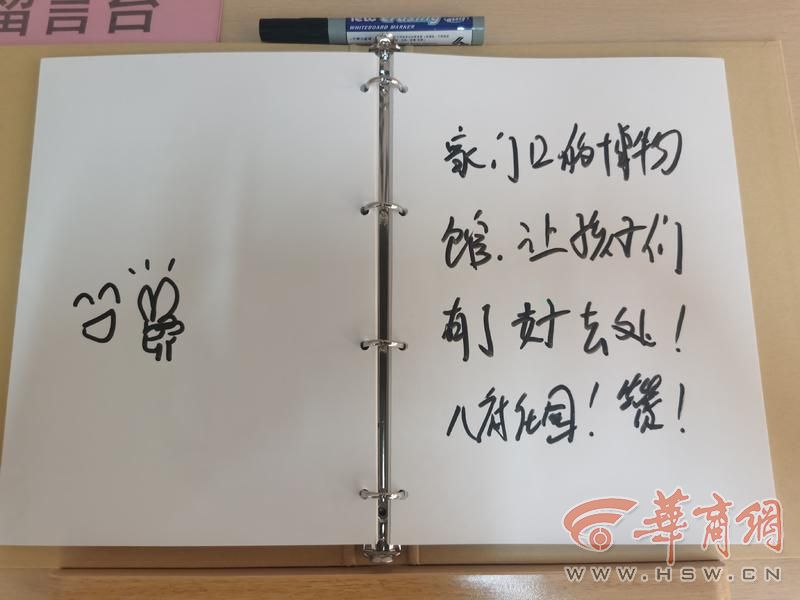 留言台
WHITEBOARD MARKER
家门口的博物
馆，让孩子们
有了好去处！
八府庄园！赞！
華商網
WWW.HSW.CN